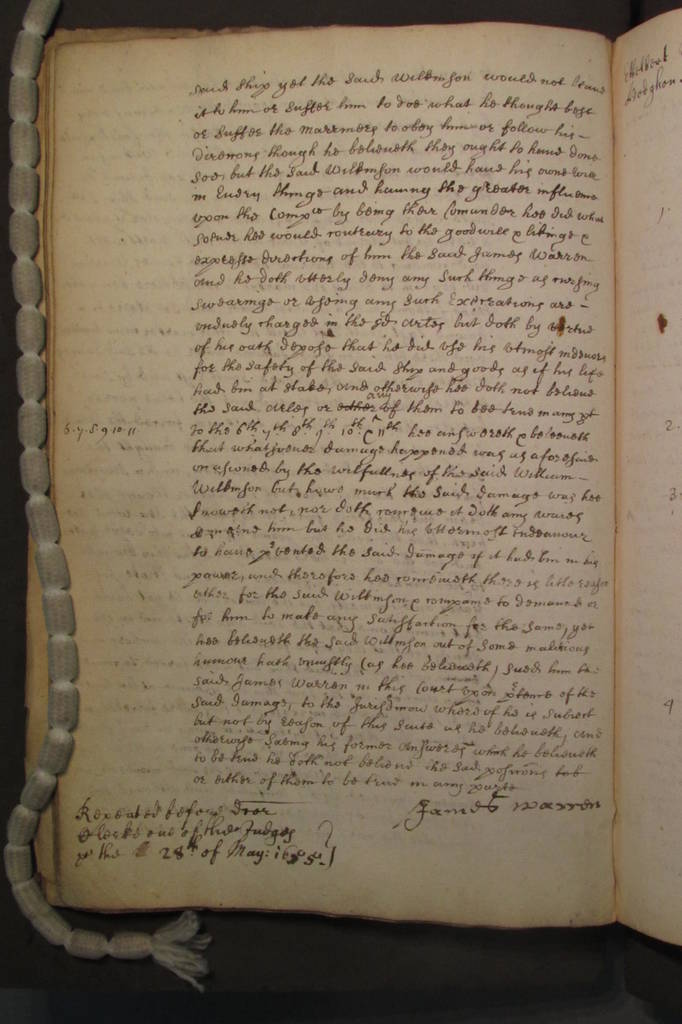 said ship yet the said Wilkinson would not leave
it to him or suffer him to doe what he thought best
or suffer the marriners to obey him or follow his
direccons though he believeth they ought to have done
soe, but the said Wilkinson would have his owne will
in every thinge and having the greater influence
vpon the Compie by being their Comander hee did what
soever hee would contrary to the goodwill & likinge &
expresse direccions of him the said James Warren
and he doth vtterly deny any such thinge as cursing
swearinge or vseing any such Execrations are
vnduely charged in the sd arles but doth by vertue
of his oath depose that he did vse his vtmost indevors
for the safety of the said ship and goods as if his life
had bin at stake, and otherwise hee doth not believe
the said arles or either any of them to bee true in any pt
6. 7. 8. 9. 10. 11 to the 6th 7th 8th 9th 10th & 11th hee answereth & beleeveth
that whatsoever damage happened was as aforesaid
occasioned by the wilfullnes of the said William
Wilkinson but howe much the said damage was hee
knoweth not, nor doth conceive it doth any waies
concerne him but he did his vttermost indeavour
to have pvented the said damage if it had bin in his
power, and therefore hee conceiveth there is litle reason
either for the said Wilkinson & companie to demand or
for him to make any satisfaction for the same, yet
hee believeth the said Wilkinson out of some malicious
humour hath vniustly (as hee believeth) sued him the
said James Warren in this Court vpon ptence of the
said damage, to the Jurisdiccon whereof he is subiect
but not by reason of this suite as he believeth, and
otherwise saving his former answeres which he believeth
to be true he doth not believe the said posicions
or either of them to be true in any parte
Repeated before Doctor James Warren
Clerke one of the Judges
28th of May: 1655.
Ethelbert
Hodghon
1
2.
3
4